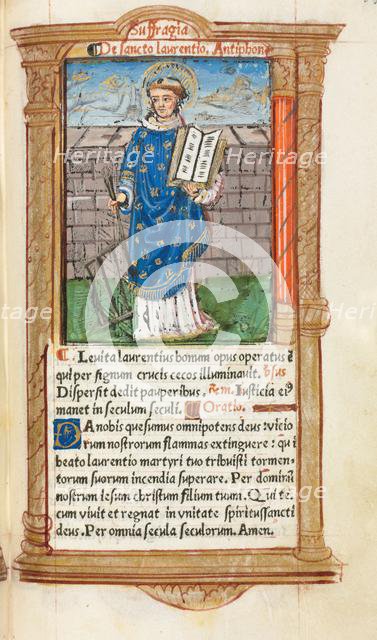 Suffragia
De sancto laurentio. Antiphona
Levita laurentius bonum opus operatus ē
qui per signum crucis cecos illuminavit. v̄sus
Dispersit dedit pauperibus, Rem. Iusticia eiꝰ
manet in seculum seculi. Oratio.
DA nobis quesumus omnipotens deus: vicio
rum nostrorum flammas extinguere: qui
beato laurentio martyri tuo tribuisti tormen-
torum suorum incendia superare. Per dominū
nostrum iesum christum filium tuum. Qui te-
cum vivit et regnat in vnitate spiritussancti
deus. Per omnia secula seculorum. Amen.
Heritage
Images